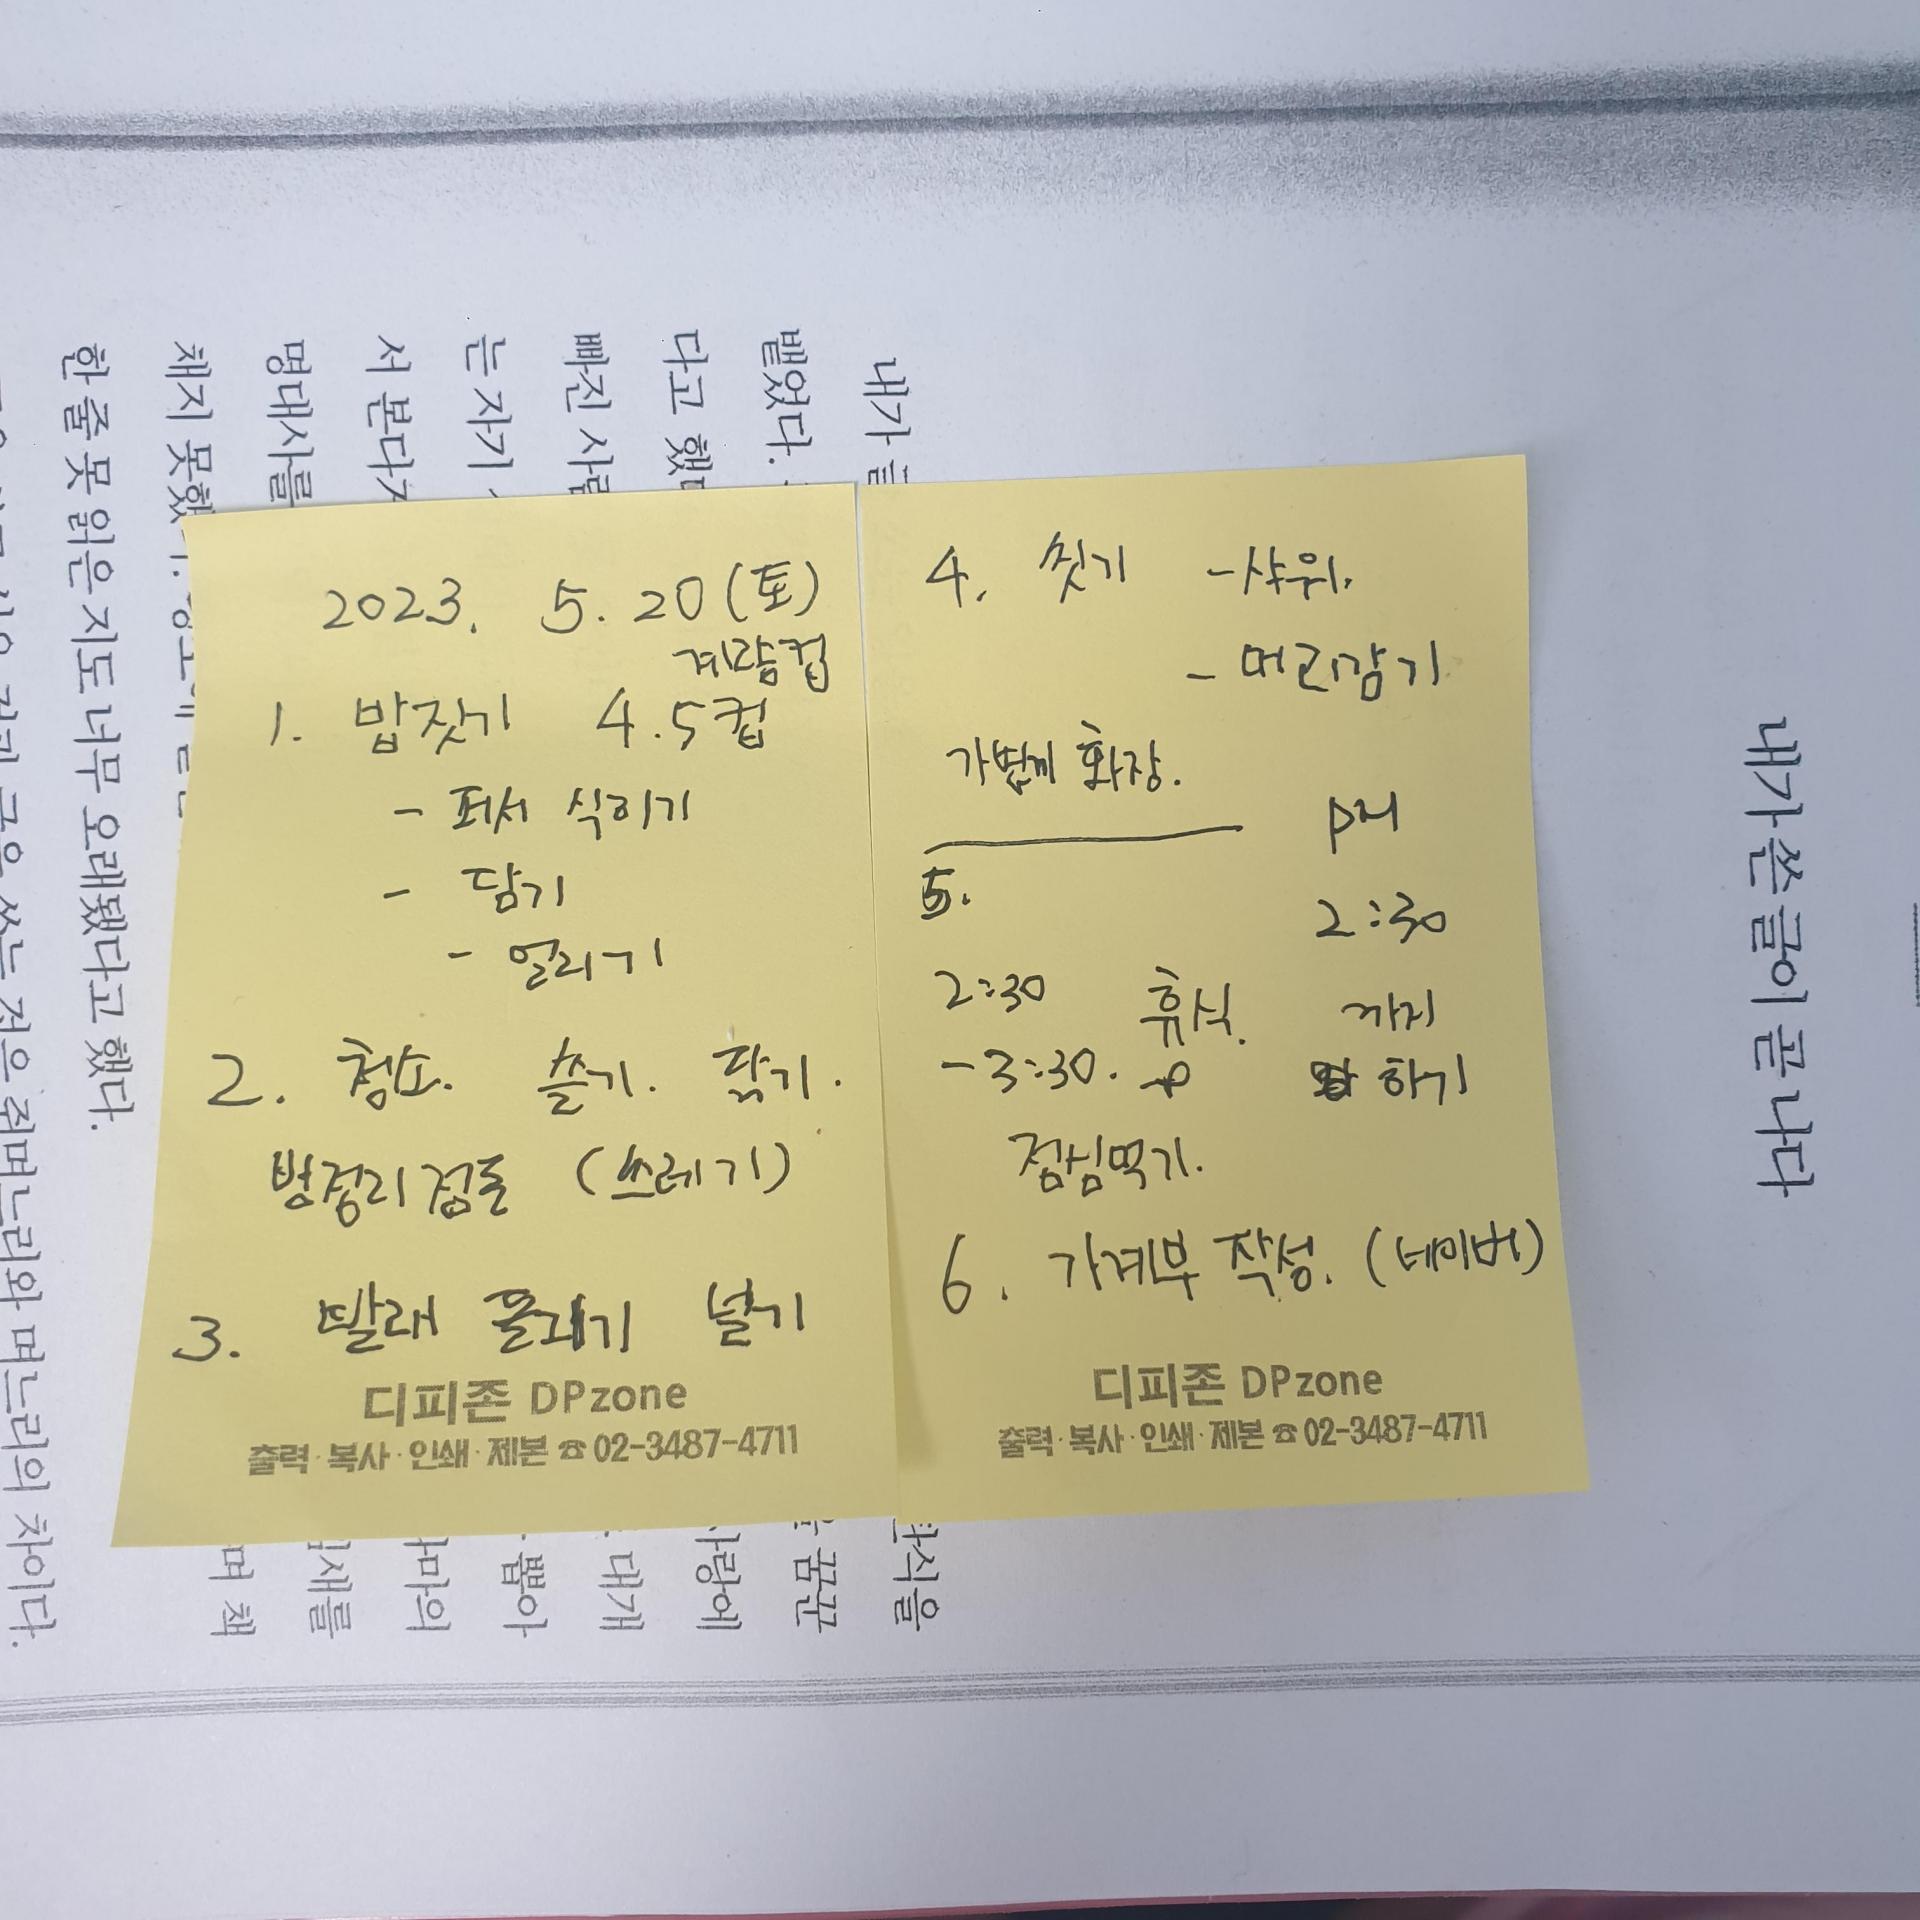 2023. 5. 20 (토)
계량컵
1. 밥짓기 4.5컵
- 퍼서 식히기
- 담기
- 얼리기
2. 청소. 쓸기. 닦기.
방정리정돈 (쓰레기)
3. 빨래 돌리기 널기
디피존 DPzone
출력·복사·인쇄·제본 ☎ 02-3487-4711
4. 씻기 - 샤워.
- 머리감기
가볍게 화장.
PM
2:30
까지
하기
5.
2:30 휴식.
- 3:30.
점심먹기.
6. 가계부 작성. (네이버)
디피존 DPzone
출력·복사·인쇄·제본 ☎ 02-3487-4711
내가 쓴 글이 끝나다
내가
뱉었다.
다고 했
빠진 사람
는 자기
서 본다
명대사를
채지 못했
한 줄 못 읽은 지도 너무 오래됐다고 했다.
며느리와 며느리의 차이다.
단식을
을 꿈꾼
사랑에
대개
뽑아
마의
새를
며 책